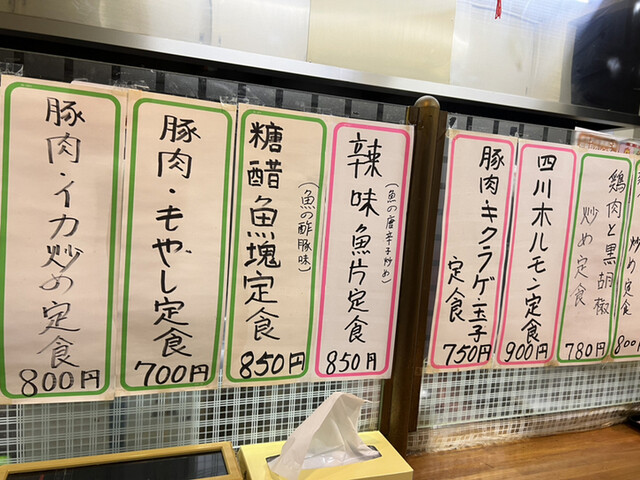 豚肉・イカ炒め定食
800円
豚肉・もやし定食
700円
糖醋魚塊定食
(魚の酢豚味)
850円
辣味魚片定食
(魚の唐辛子炒め)
850円
豚肉・キクラゲ・玉子
定食
750円
四川ホルモン定食
900円
鶏肉と黒胡椒
炒め定食
780円
炒め定食
800円